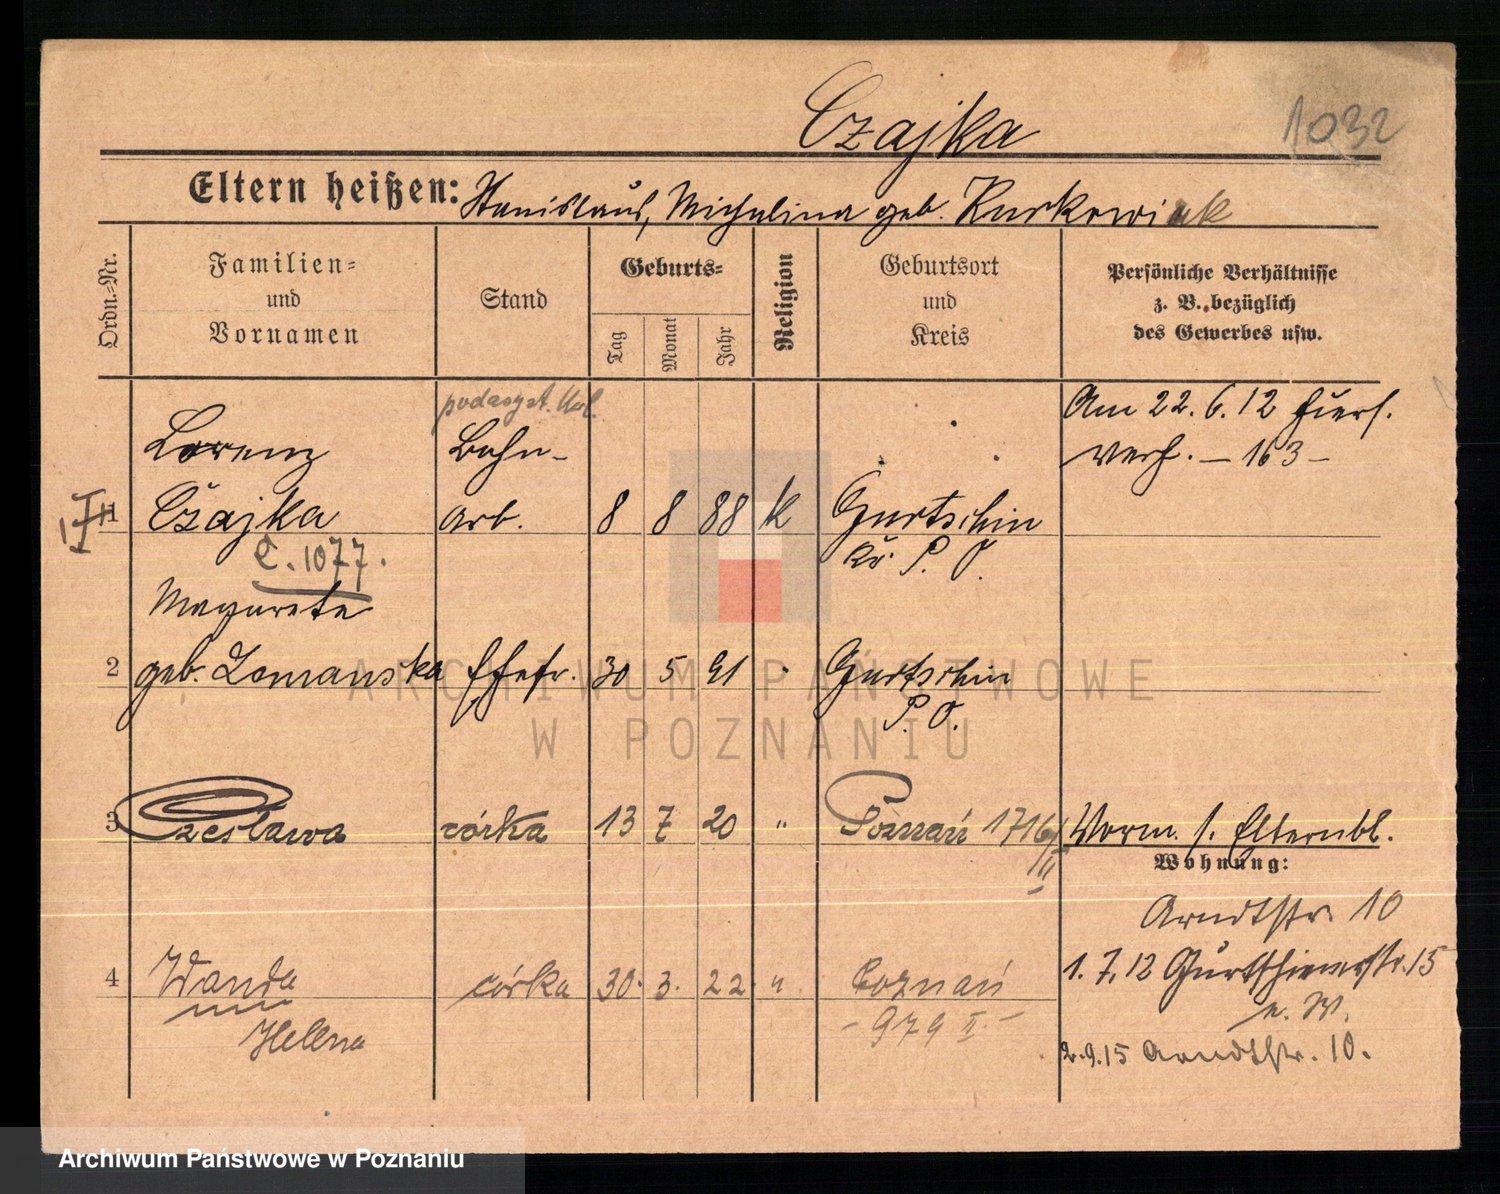 Czajka
1032
Eltern heißen: Stanislaus, Michalina geb. Kurkowiak
Ordn.-Nr.
Familien-
und
Vornamen
Stand
Geburts-
Tag
Monat
Jahr
Religion
Geburtsort
und
Kreis
Persönliche Verhältnisse
z. B. bezüglich
des Gewerbes usw.
Am 22. 6. 12 hiers.
verh. – 163 –
Lorenz
Bahn-
1 Czajka arb. 8 8 88 k Gurtschin
Kr. P. O.
C. 1077.
Magareta
2 geb. Lomanska Ehefr. 30 5 91 " Gurtschin
P. O.
3 Czesława córka 13 7 20 " Poznań 1716/II Vorm. s. Elternbl.
Wohnung:
Arndtstr. 10
1. 7. 12 Gurtschinerstr. 15
n. W.
2. 9. 15 Arndtstr. 10.
4 Wanda córka 30. 3. 22. " Poznań
Helena
– 979 II. –
ARCHIWUM PAŃSTWOWE
W POZNANIU
Archiwum Państwowe w Poznaniu